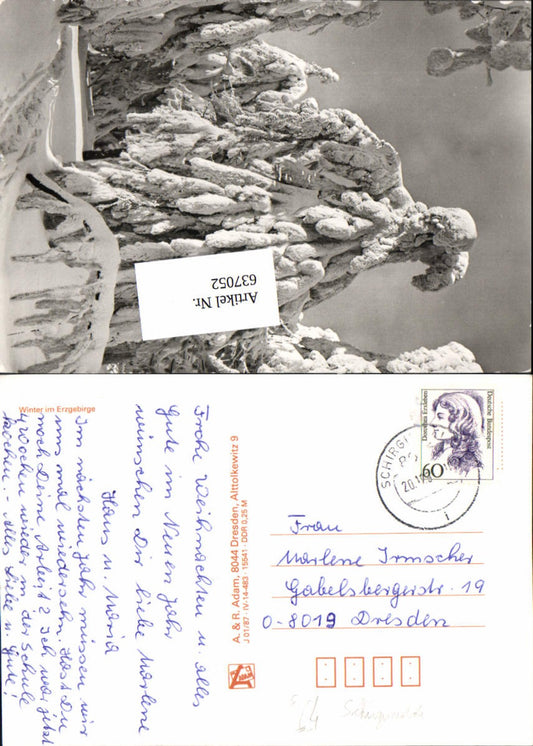 Artikel Nr.
637052
Winter im Erzgebirge
Frohe Weihnachten u. alles
Gute im Neuen Jahr
wünschen Dir liebe Marlene
Hans u. Maria
Im nächsten Jahr müssen wir
uns mal wiedersehen. Hast Du
noch Deine Arbeit? Ich war jetzt
Wochen wieder in der Schule
kochen - Alles Liebe u. Gute!
A. & R. Adam, 8044 Dresden, Alttolkewitz 9
J 01/87 · IV-14-483 · 15541 · DDR 0,25 M
Dorothea Erxleben
Deutsche Bundespost
60
SCHIRGI
20.12
Frau
Marlene Irmscher
Gabelsbergerstr. 19
O-8019 Dresden